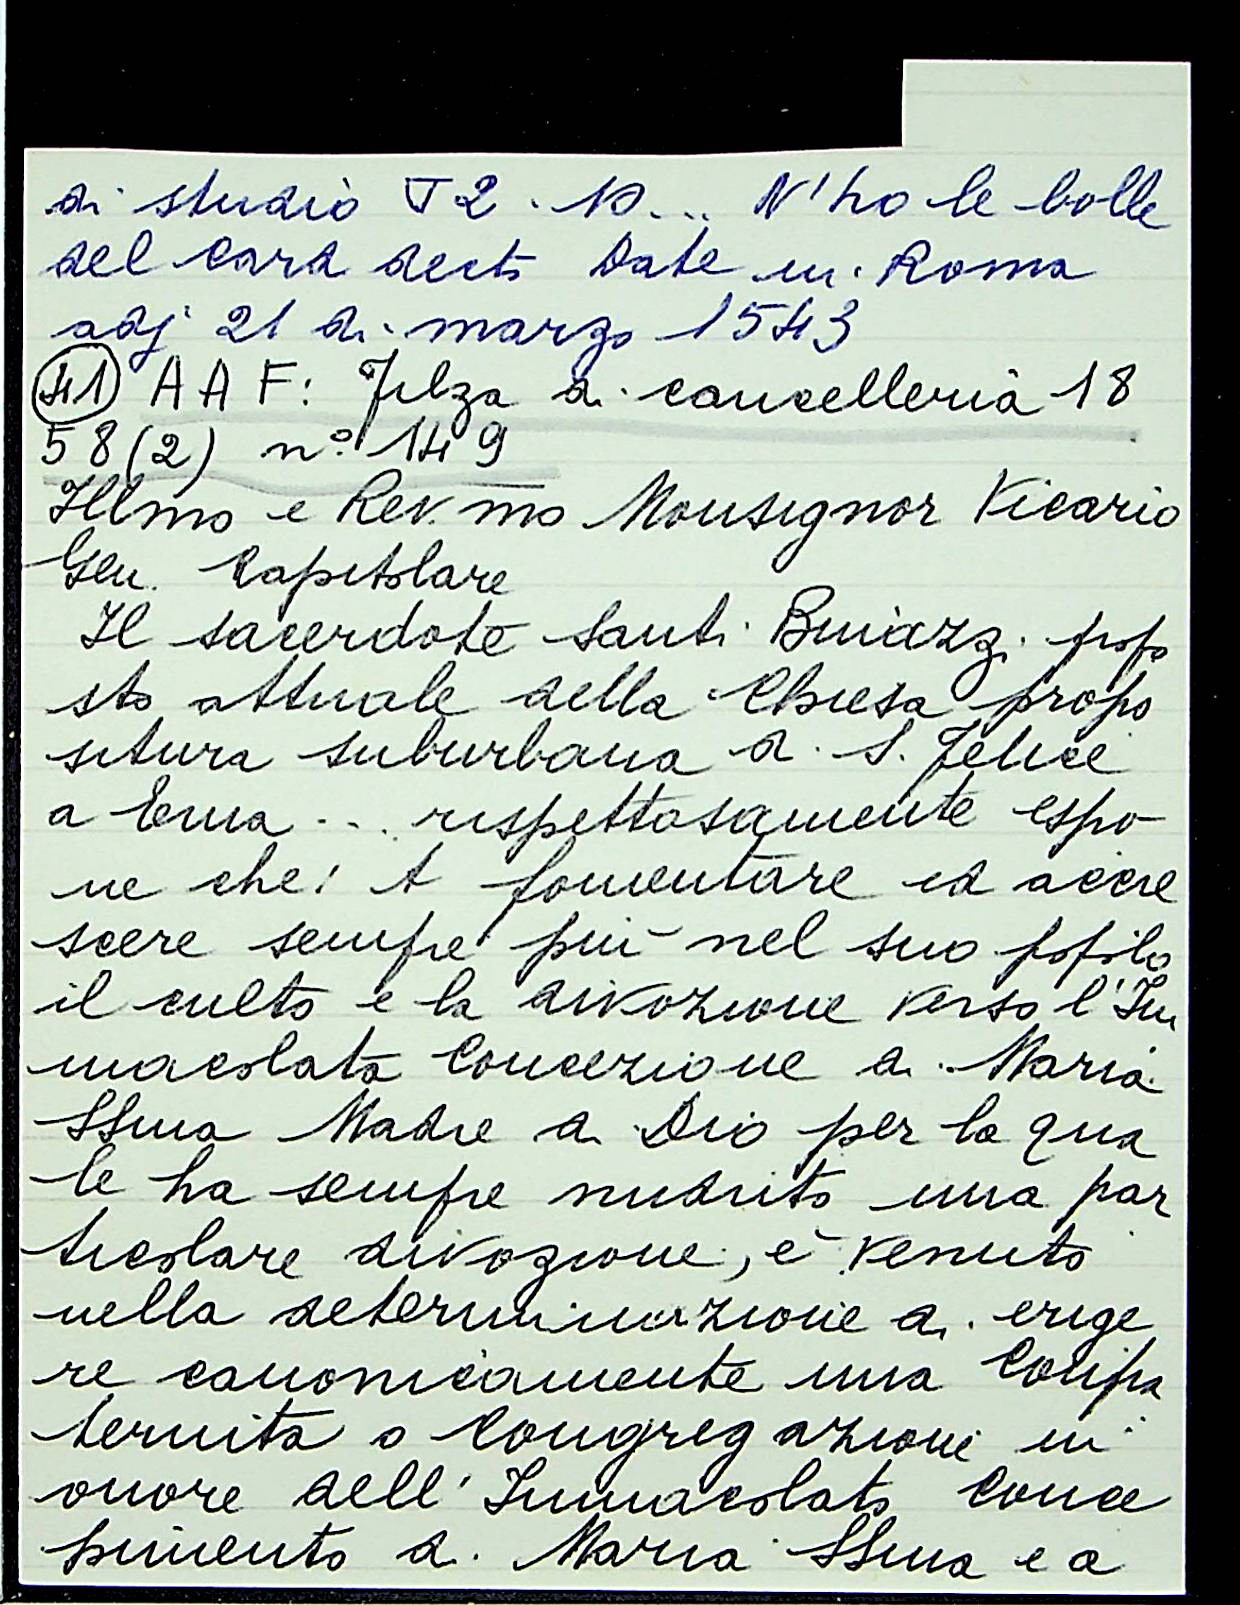 di studio J2. 10... N'ho le bolle
del card decto Date in Roma
adj 21 di marzo 1543
(41) AAF: Filza di cancelleria 18
58(2) n° 149
Illmo e Rev.mo Monsignor Vicario
Gen. Capitolare
Il sacerdote Santi Buiazzi propo
sto attuale della Chiesa propo
situra suburbana di S. Felice
a Ema... rispettosamente espo
ne che: A fomentare ed accre
scere sempre più nel suo popolo
il culto e la divozione verso l'Im
macolata Concezione di Maria
SSma Madre di Dio per la qua
le ha sempre nudrito una par
ticolare divozione, è venuto
nella determinazione di erige
re canonicamente una Confra
ternita o Congregazione in
onore dell'Immacolato Conce
pimento di Maria SSma e a